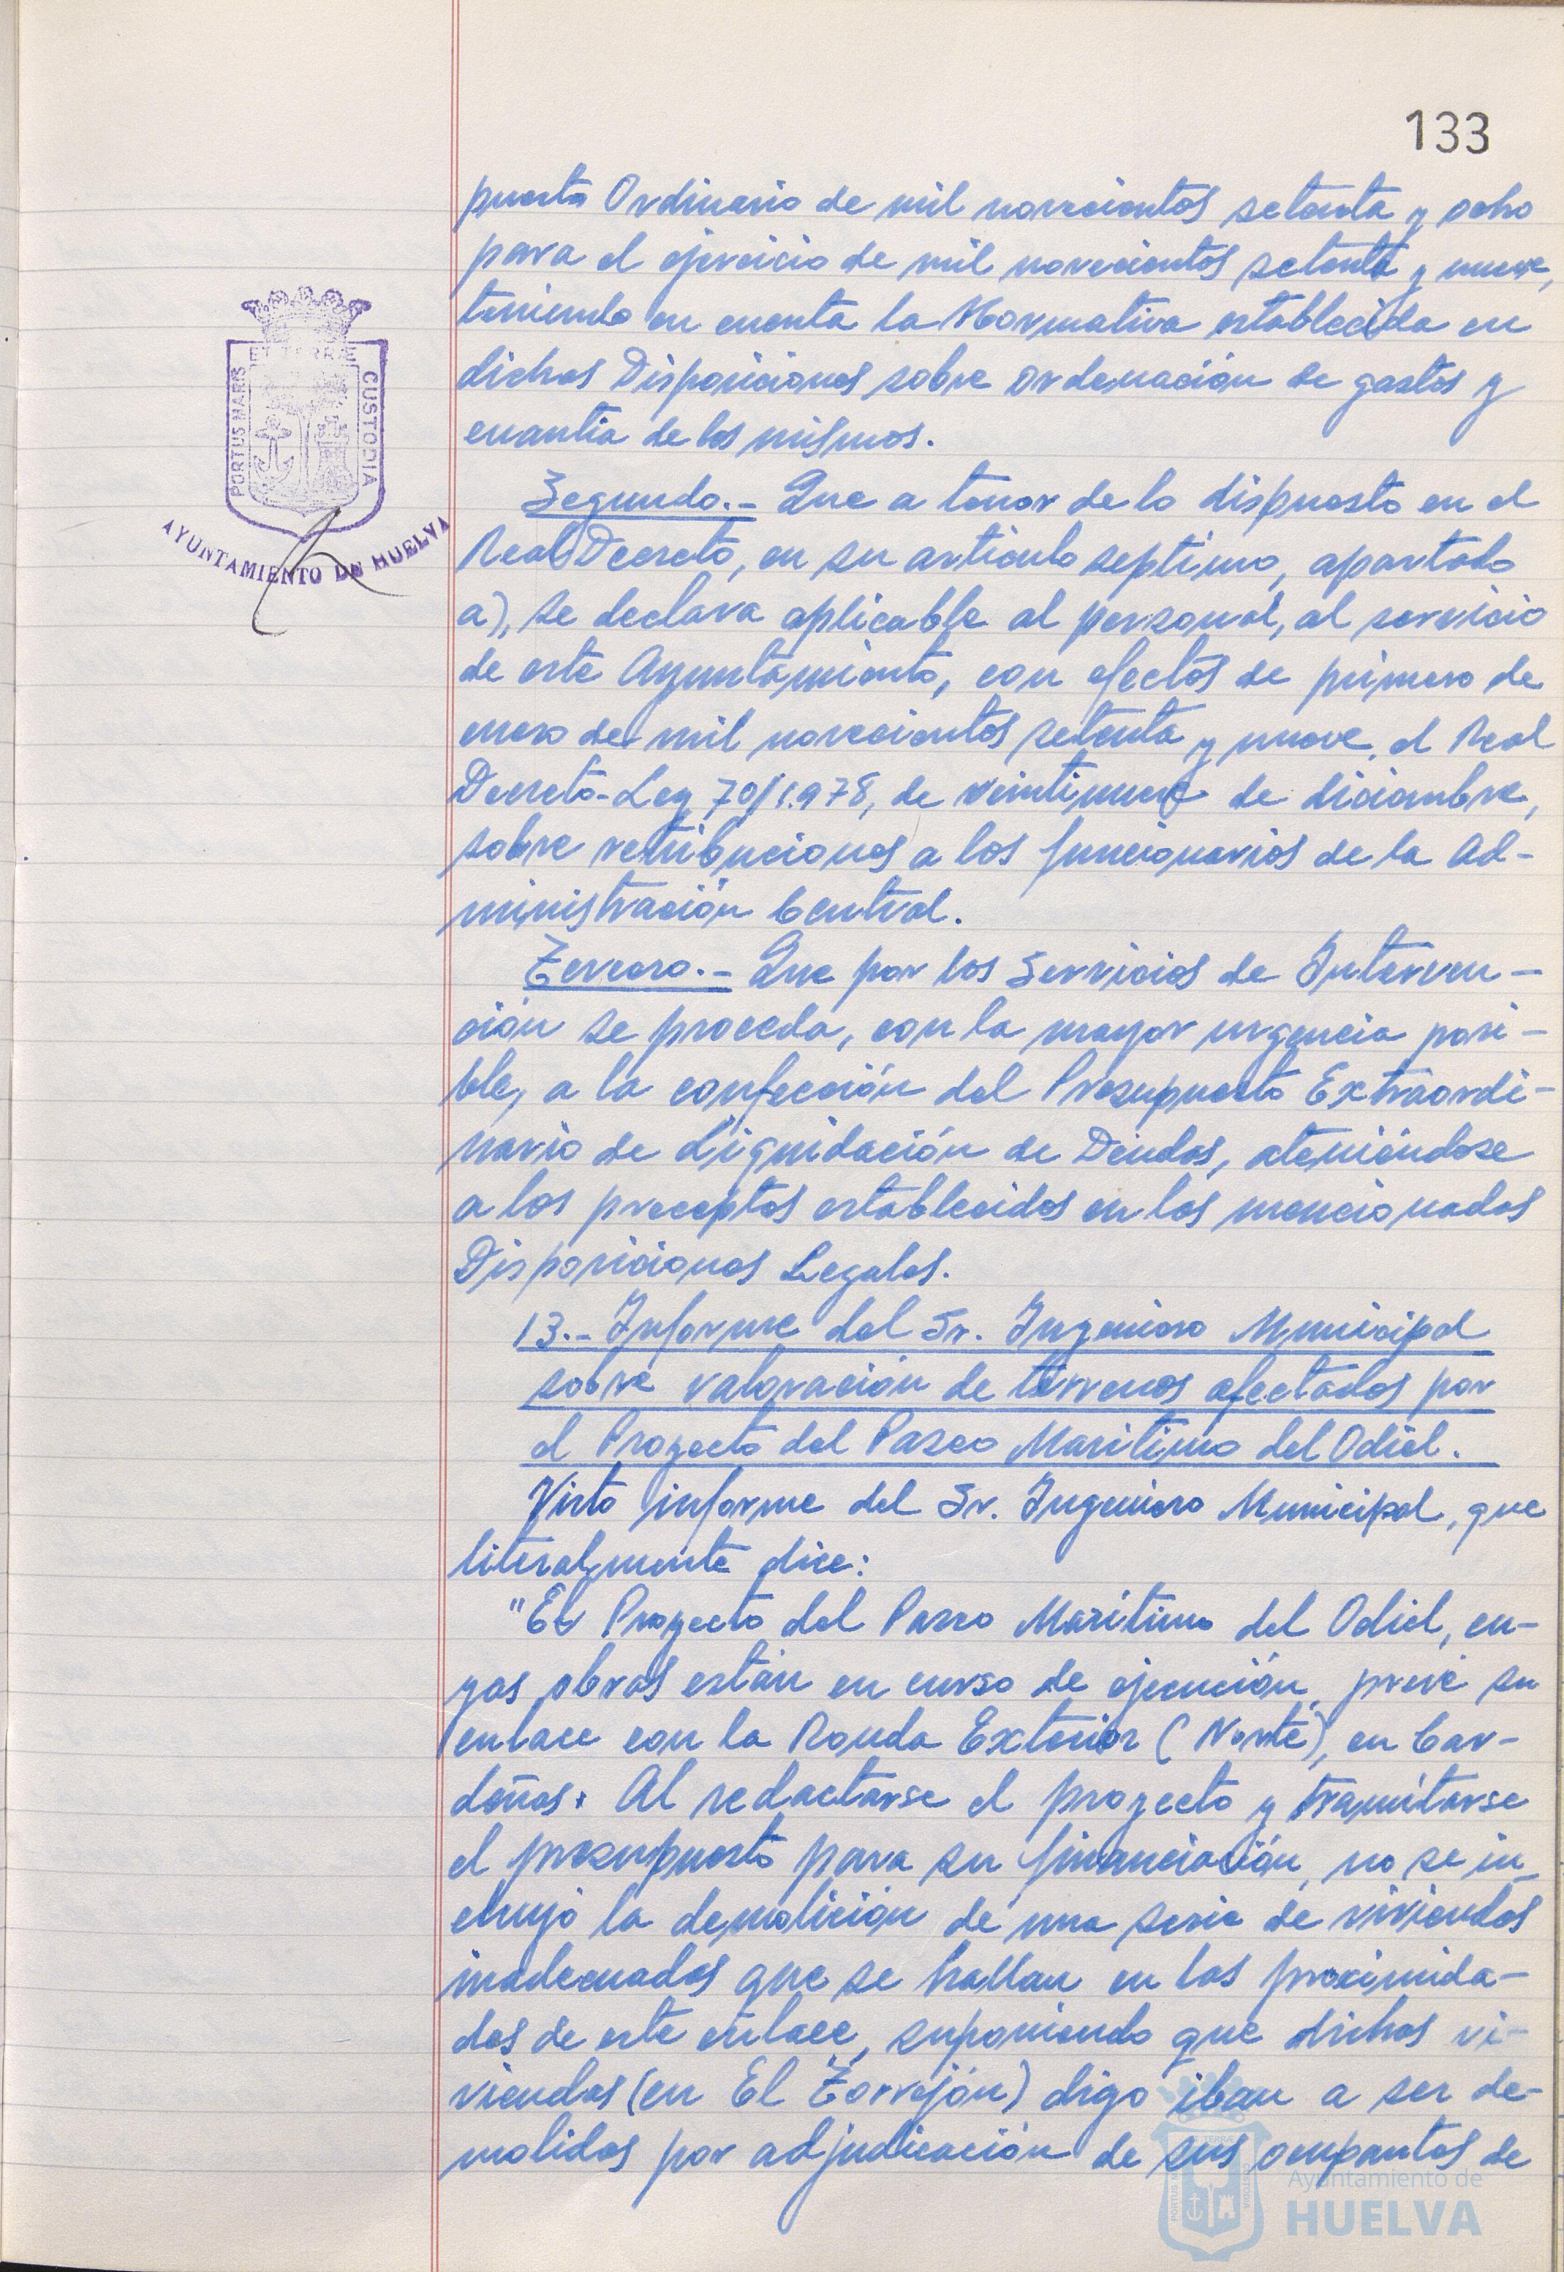 133
puesto Ordinario de mil novecientos setenta y ocho
para el ejercicio de mil novecientos setenta y nueve,
teniendo en cuenta la Normativa establecida en
dichas Disposiciones sobre ordenación de gastos y
cuantía de los mismos.
Segundo.- Que a tenor de lo dispuesto en el
Real Decreto, en su artículo septimo, apartado
a), se declara aplicable al personal, al servicio
de este Ayuntamiento, con efectos de primero de
enero de mil novecientos setenta y nueve, el Real
Decreto-Ley 70/1.978, de veintinueve de diciembre,
sobre retribuciones a los funcionarios de la Ad-
ministración Central.
Tercero.- Que por los Servicios de Interven-
ción se proceda, con la mayor urgencia posi-
ble, a la confección del Presupuesto Extraordi-
nario de Liquidación de Deudas, ateniéndose
a los preceptos establecidos en las mencionadas
Disposiciones Legales.
13.- Informe del Sr. Ingeniero Municipal
sobre valoración de terrenos afectados por
el Proyecto del Paseo Maritimo del Odiel.
Visto informe del Sr. Ingeniero Municipal, que
literalmente dice:
"El Proyecto del Paseo Maritimo del Odiel, cu-
yas obras están en curso de ejecución, prevé su
enlace con la Ronda Exterior (Norte), en Car-
deñas. Al redactarse el proyecto y tramitarse
el presupuesto para su financiación, no se in-
cluyó la demolición de una serie de viviendas
inadecuadas que se hallan en las proximida-
des de este enlace, suponiendo que dichas vi-
viendas (en El Torrejón) digo iban a ser de-
molidas por adjudicación de sus ocupantes de
PORTUS MARIS ET TERRÆ CUSTODIA
AYUNTAMIENTO DE HUELVA
Ayuntamiento de
HUELVA